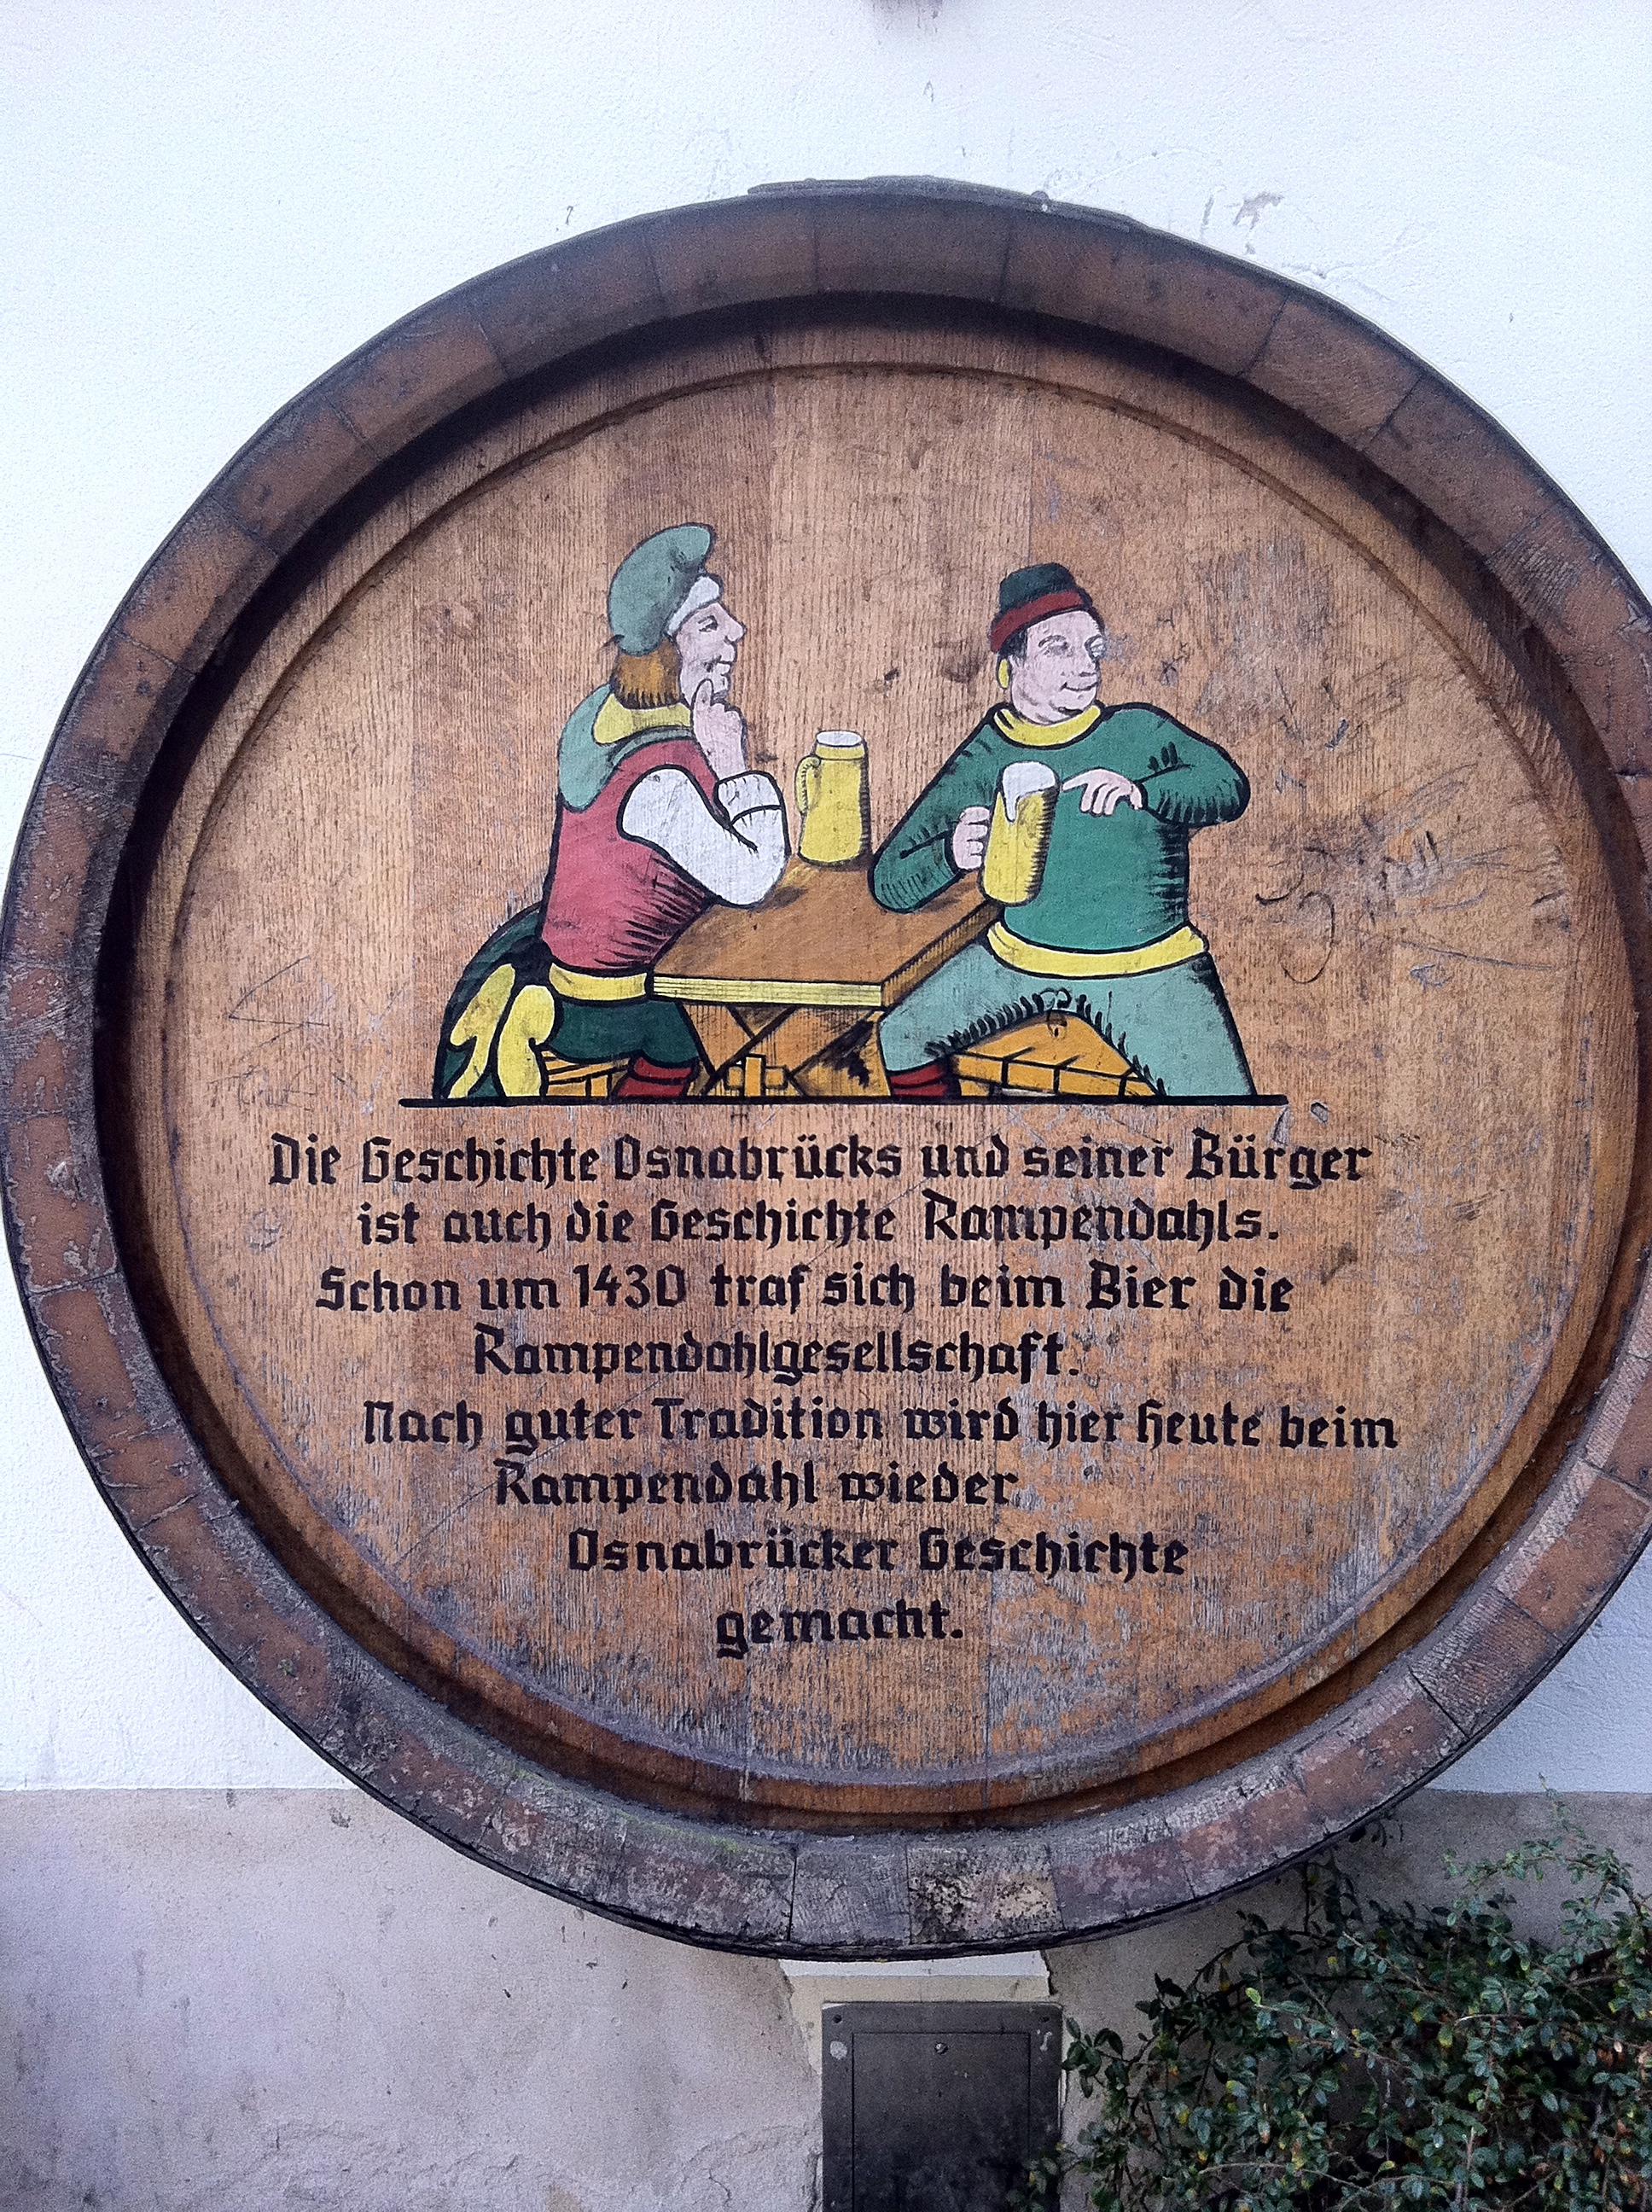 Die Geschichte Osnabrücks und seiner Bürger
ist auch die Geschichte Rampendahls.
Schon um 1430 traf sich beim Bier die
Rampendahlgesellschaft.
Nach guter Tradition wird hier heute beim
Rampendahl wieder
Osnabrücker Geschichte
gemacht.